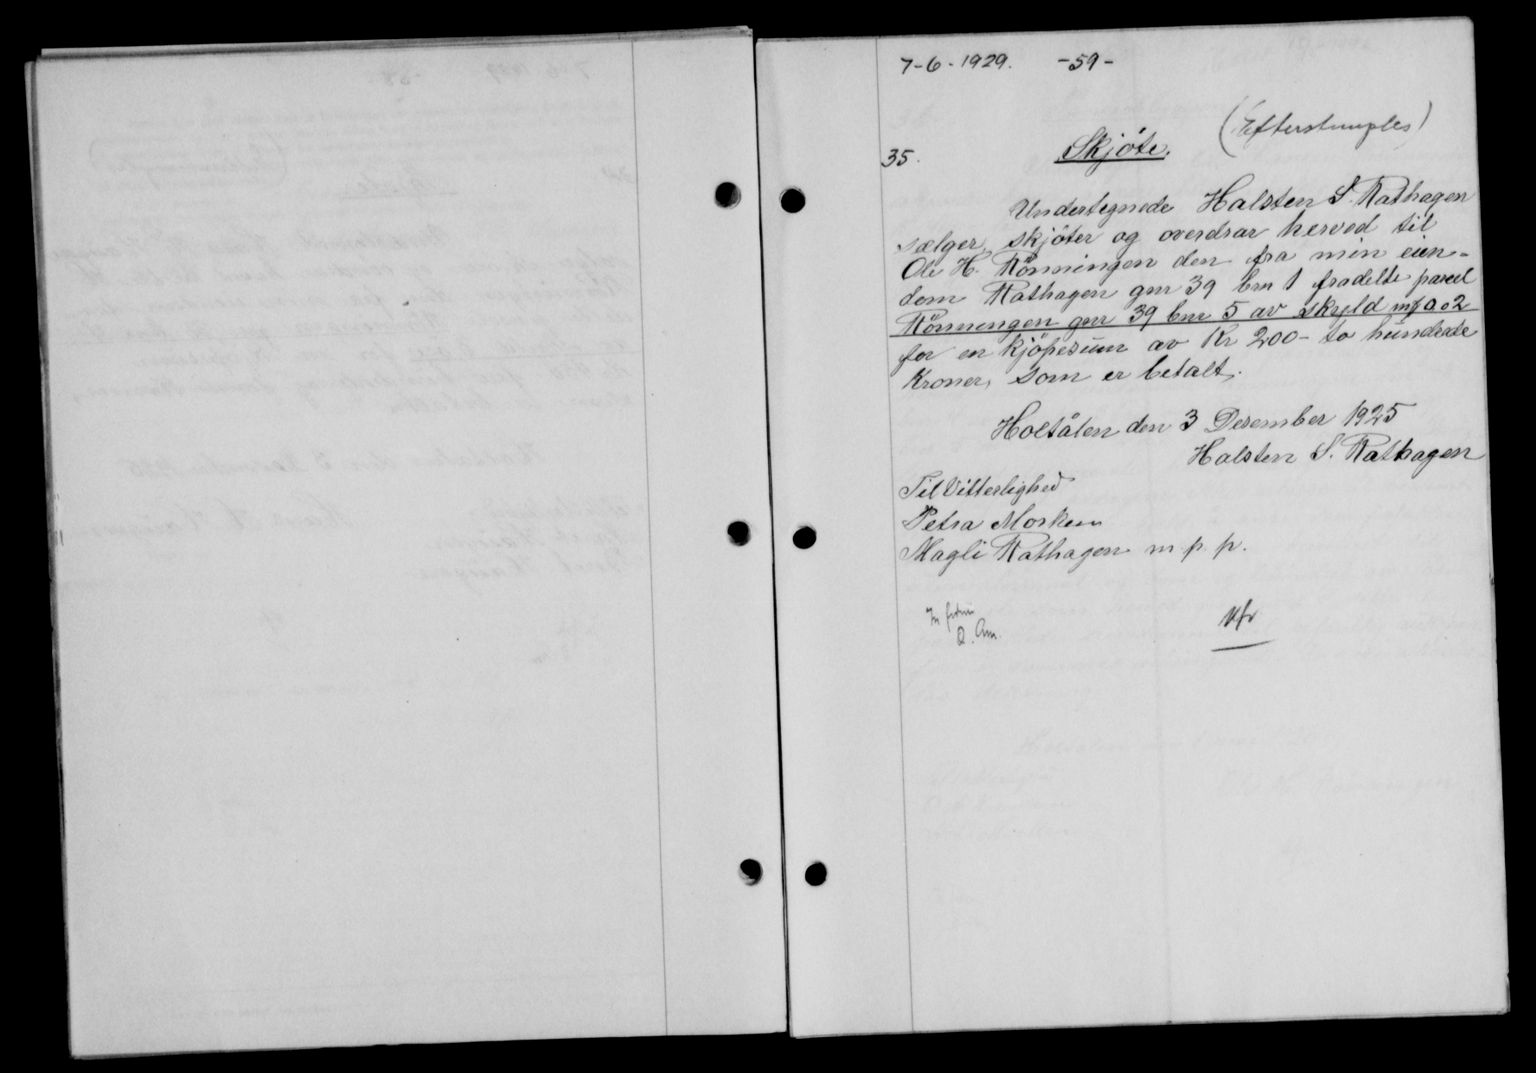 7-6-1929. -59-
(Efterstemples)
35. Skjöte.
Undertegnede Halsten S. Rathagen
sælger, skjöter og overdrar herved til
Ole H. Rönningen den fra min eien-
dom Rathagen gnr 39 bnr 1 fradelte parcel
Rönningen gnr 39 bnr 5 av skyld mk 0.02
for en kjöpesum av Kr 200- to hundrede
kroner, som er betalt.
Holtålen den 3 Desember 1925
Halsten S. Rathagen
Til Vitterlighed
Petra Morken
Magli Rathagen m. p. p.